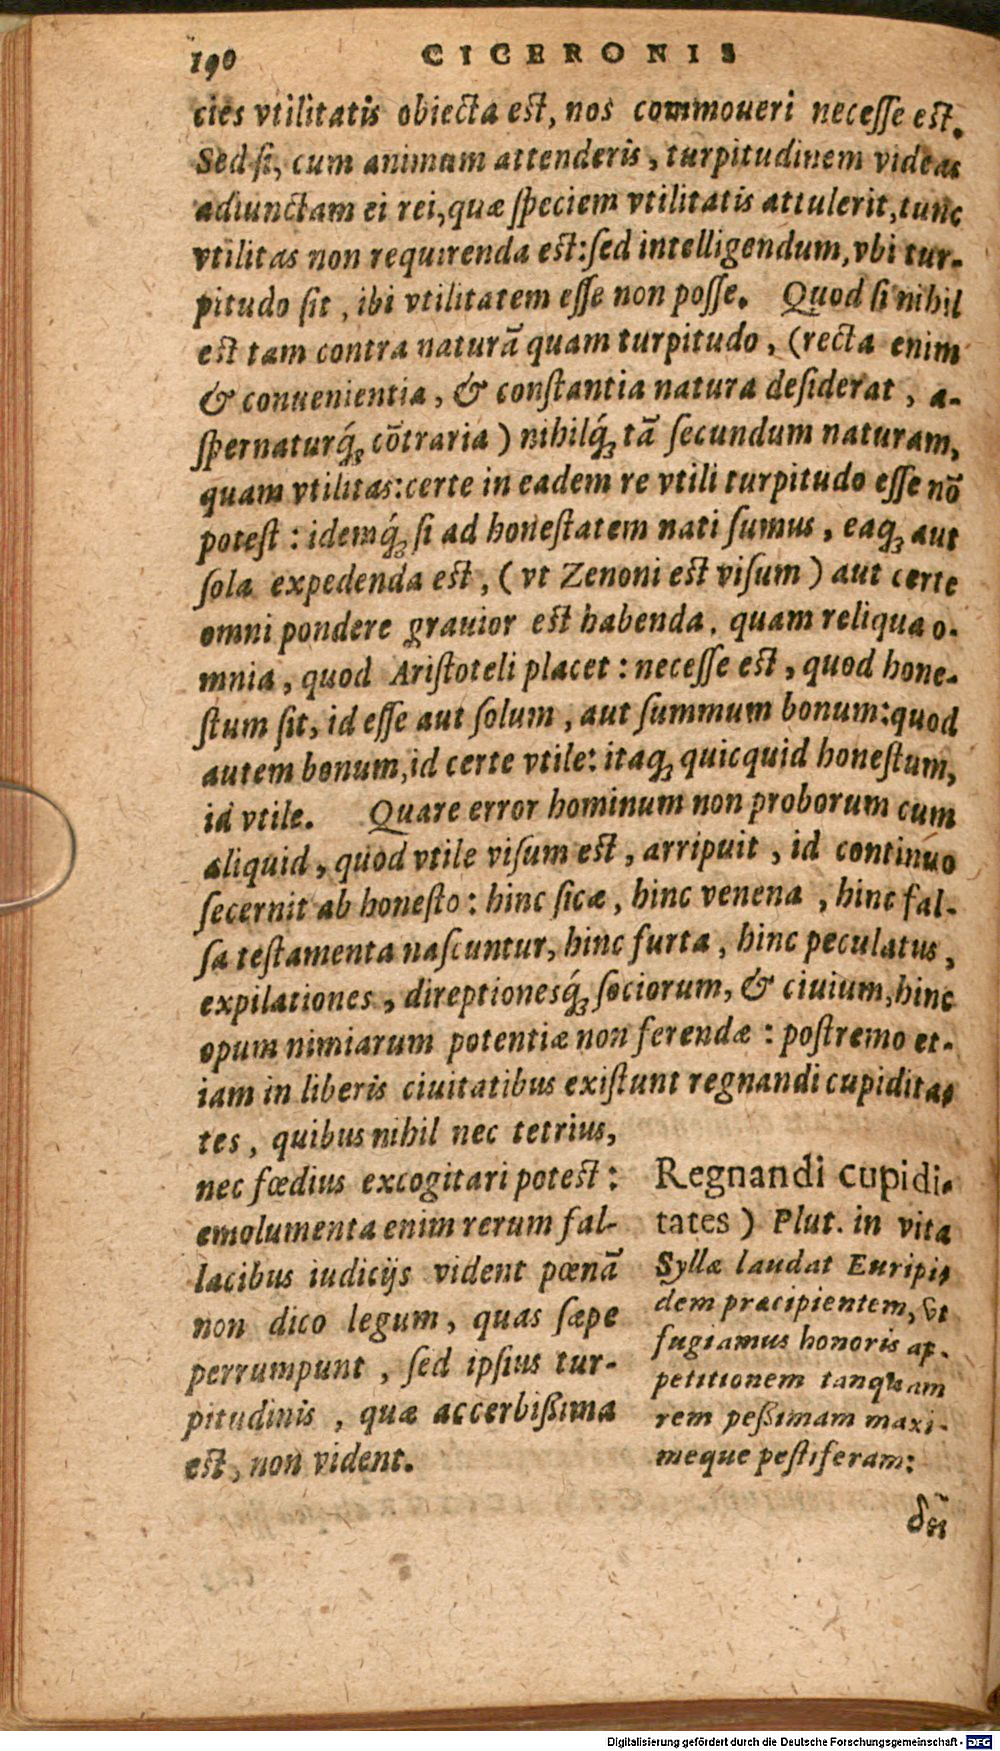 190 CICERONIS
cies vtilitatis obiecta est, nos commoueri necesse est.
Sed si, cum animum attenderis, turpitudinem videas
adiunctam ei rei, quæ speciem vtilitatis attulerit, tunc
vtilitas non requirenda est: sed intelligendum, vbi tur-
pitudo sit, ibi vtilitatem esse non posse. Quod si nihil
est tam contra naturã quam turpitudo, (recta enim
& conuenientia, & constantia natura desiderat, a-
spernaturq́; cõtraria) nihilq́; tã secundum naturam,
quam vtilitas: certe in eadem re vtili turpitudo esse nõ
potest: idemq́; si ad honestatem nati sumus, eaq; aut
sola expedenda est, (vt Zenoni est visum) aut certe
omni pondere grauior est habenda, quam reliqua o-
mnia, quod Aristoteli placet: necesse est, quod hone-
stum sit, id esse aut solum, aut summum bonum: quod
autem bonum, id certe vtile: itaq; quicquid honestum,
id vtile. Quare error hominum non proborum cum
aliquid, quod vtile visum est, arripuit, id continuo
secernit ab honesto: hinc sicæ, hinc venena, hinc fal-
sa testamenta nascuntur, hinc furta, hinc peculatus,
expilationes, direptionesq́; sociorum, & ciuium, hinc
opum nimiarum potentiæ non ferendæ: postremo et-
iam in liberis ciuitatibus existunt regnandi cupidita-
tes, quibus nihil nec tetrius,
nec fœdius excogitari potest:
emolumenta enim rerum fal-
lacibus iudicijs vident pœnã
non dico legum, quas sæpe
perrumpunt, sed ipsius tur-
pitudinis, quæ accerbißima
est, non vident.
Regnandi cupidi-
tates) Plut. in vita
Syllæ laudat Euripi-
dem præcipientem, vt
fugiamus honoris ap-
petitionem tanquam
rem peßimam maxi-
meque pestiferam:
Digitalisierung gefördert durch die Deutsche Forschungsgemeinschaft - DFG